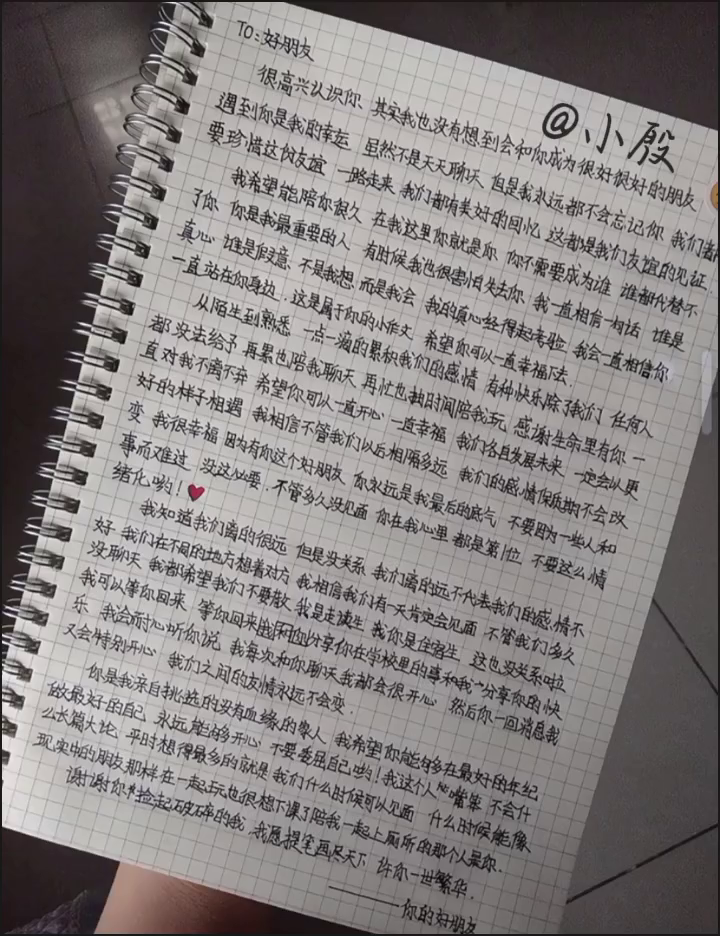 TO:好朋友
@小殷
很高兴认识你 其实我也没有想到会和你成为很好很好的朋友
遇到你是我的幸运 虽然不是天天聊天 但是我永远都不会忘记你 我们都
要珍惜这份友谊 一路走来 我们都有美好的回忆 这都是我们友谊的见证.
我希望能陪你很久 在我这里你就是你 你不需要成为谁 谁都代替不
了你 你是我最重要的人 有时候我也很害怕失去你.我一直相信一句话 谁是
真心 谁是假意 不是我想 而是我会 我的真心经得起考验 我会一直相信你
一直站在你身边.这是属于你的小作文 希望你可以一直幸福下去.
从陌生到熟悉 一点一滴的累积我们的感情 有种快乐除了我们 任何人
都没法给予 再累也陪我聊天 再忙也抽时间陪我玩 感谢生命里有你 一
直对我不离不弃 希望你可以一直开心 一直幸福 我们各自发展未来 一定会以更
好的样子相遇 我相信不管我们以后相隔多远 我们的感情保质期不会改
变 我很幸福 因为有你这个好朋友 你永远是我最后的底气 不要因为一些人和
事而难过 没这必要.不管多久没见面 你在我心里 都是第1位 不要这么情
绪化哟!❤
我知道我们离的很远 但是没关系 我们离的远不代表我们的感情不
好 我们在不同的地方想着对方 我相信我们有一天肯定会见面 不管我们多久
没聊天 我都希望我们不要散 我是走读生 我你是住宿生 这也没关系啦
我可以等你回来 等你回来分享你在学校里的事和我 分享你的快
乐 我会耐心听你说 我每次和你聊天我都会很开心 然后你一回消息我
又会特别开心 我们之间的友情永远不会变.
你是我亲自挑选的没有血缘的家人 我希望你能够在最好的年纪
做最好的自己 永远能够开心 不要委屈自己哟!我这个人 嘴笨 不会什
么长篇大论 平时想得最多的就是我们什么时候可以见面 什么时候能像
现实中的朋友那样在一起玩也很想下课了陪我一起上厕所的那个人是你.
谢谢你捡起破碎的我 我愿提笔画尽天下 许你一世繁华.
——你的好朋友